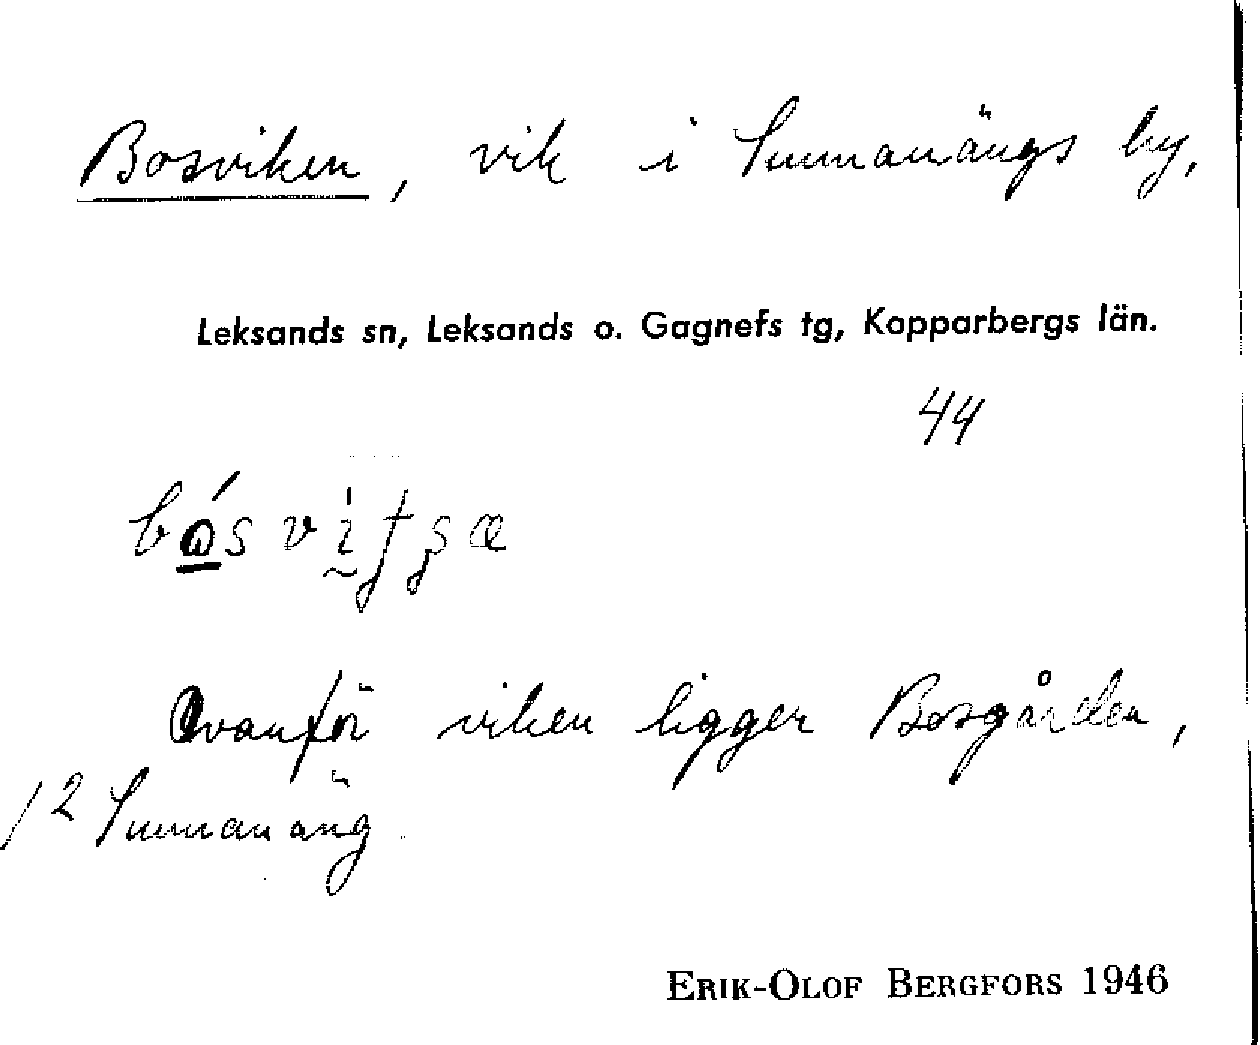 Bosviken, vik i Sunnanängs by,
Leksands sn, Leksands o. Gagnefs tg, Kopparbergs län.
44
Ovanför viken ligger Bosgården,
/2 Sunnanäng.
ERIK-OLOF BERGFORS 1946